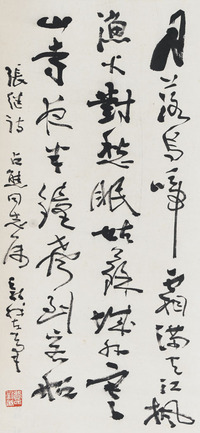 月落烏啼霜滿天江楓
漁火對愁眠姑蘇城外寒
山寺夜半鐘聲到客船
張繼詩
占熊同志屬